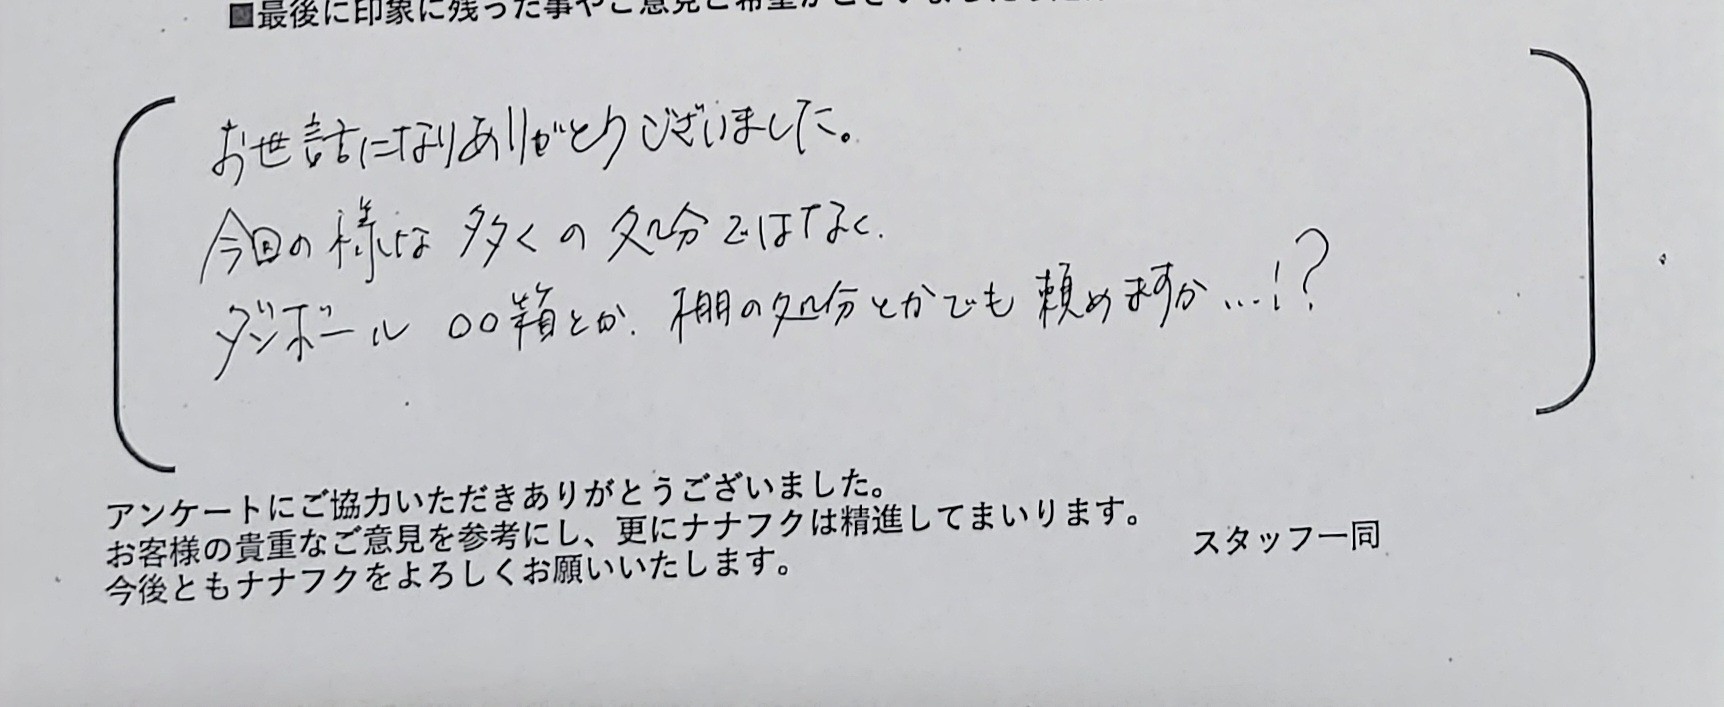 ■最後に印象に残った事やご意見ご希望がございましたら
お世話になりありがとうございました。
今回の様な多くの処分ではなく、
ダンボール〇〇箱とか、棚の処分とかでも頼めますか…!?
アンケートにご協力いただきありがとうございました。
お客様の貴重なご意見を参考にし、更にナナフクは精進してまいります。
今後ともナナフクをよろしくお願いいたします。
スタッフ一同